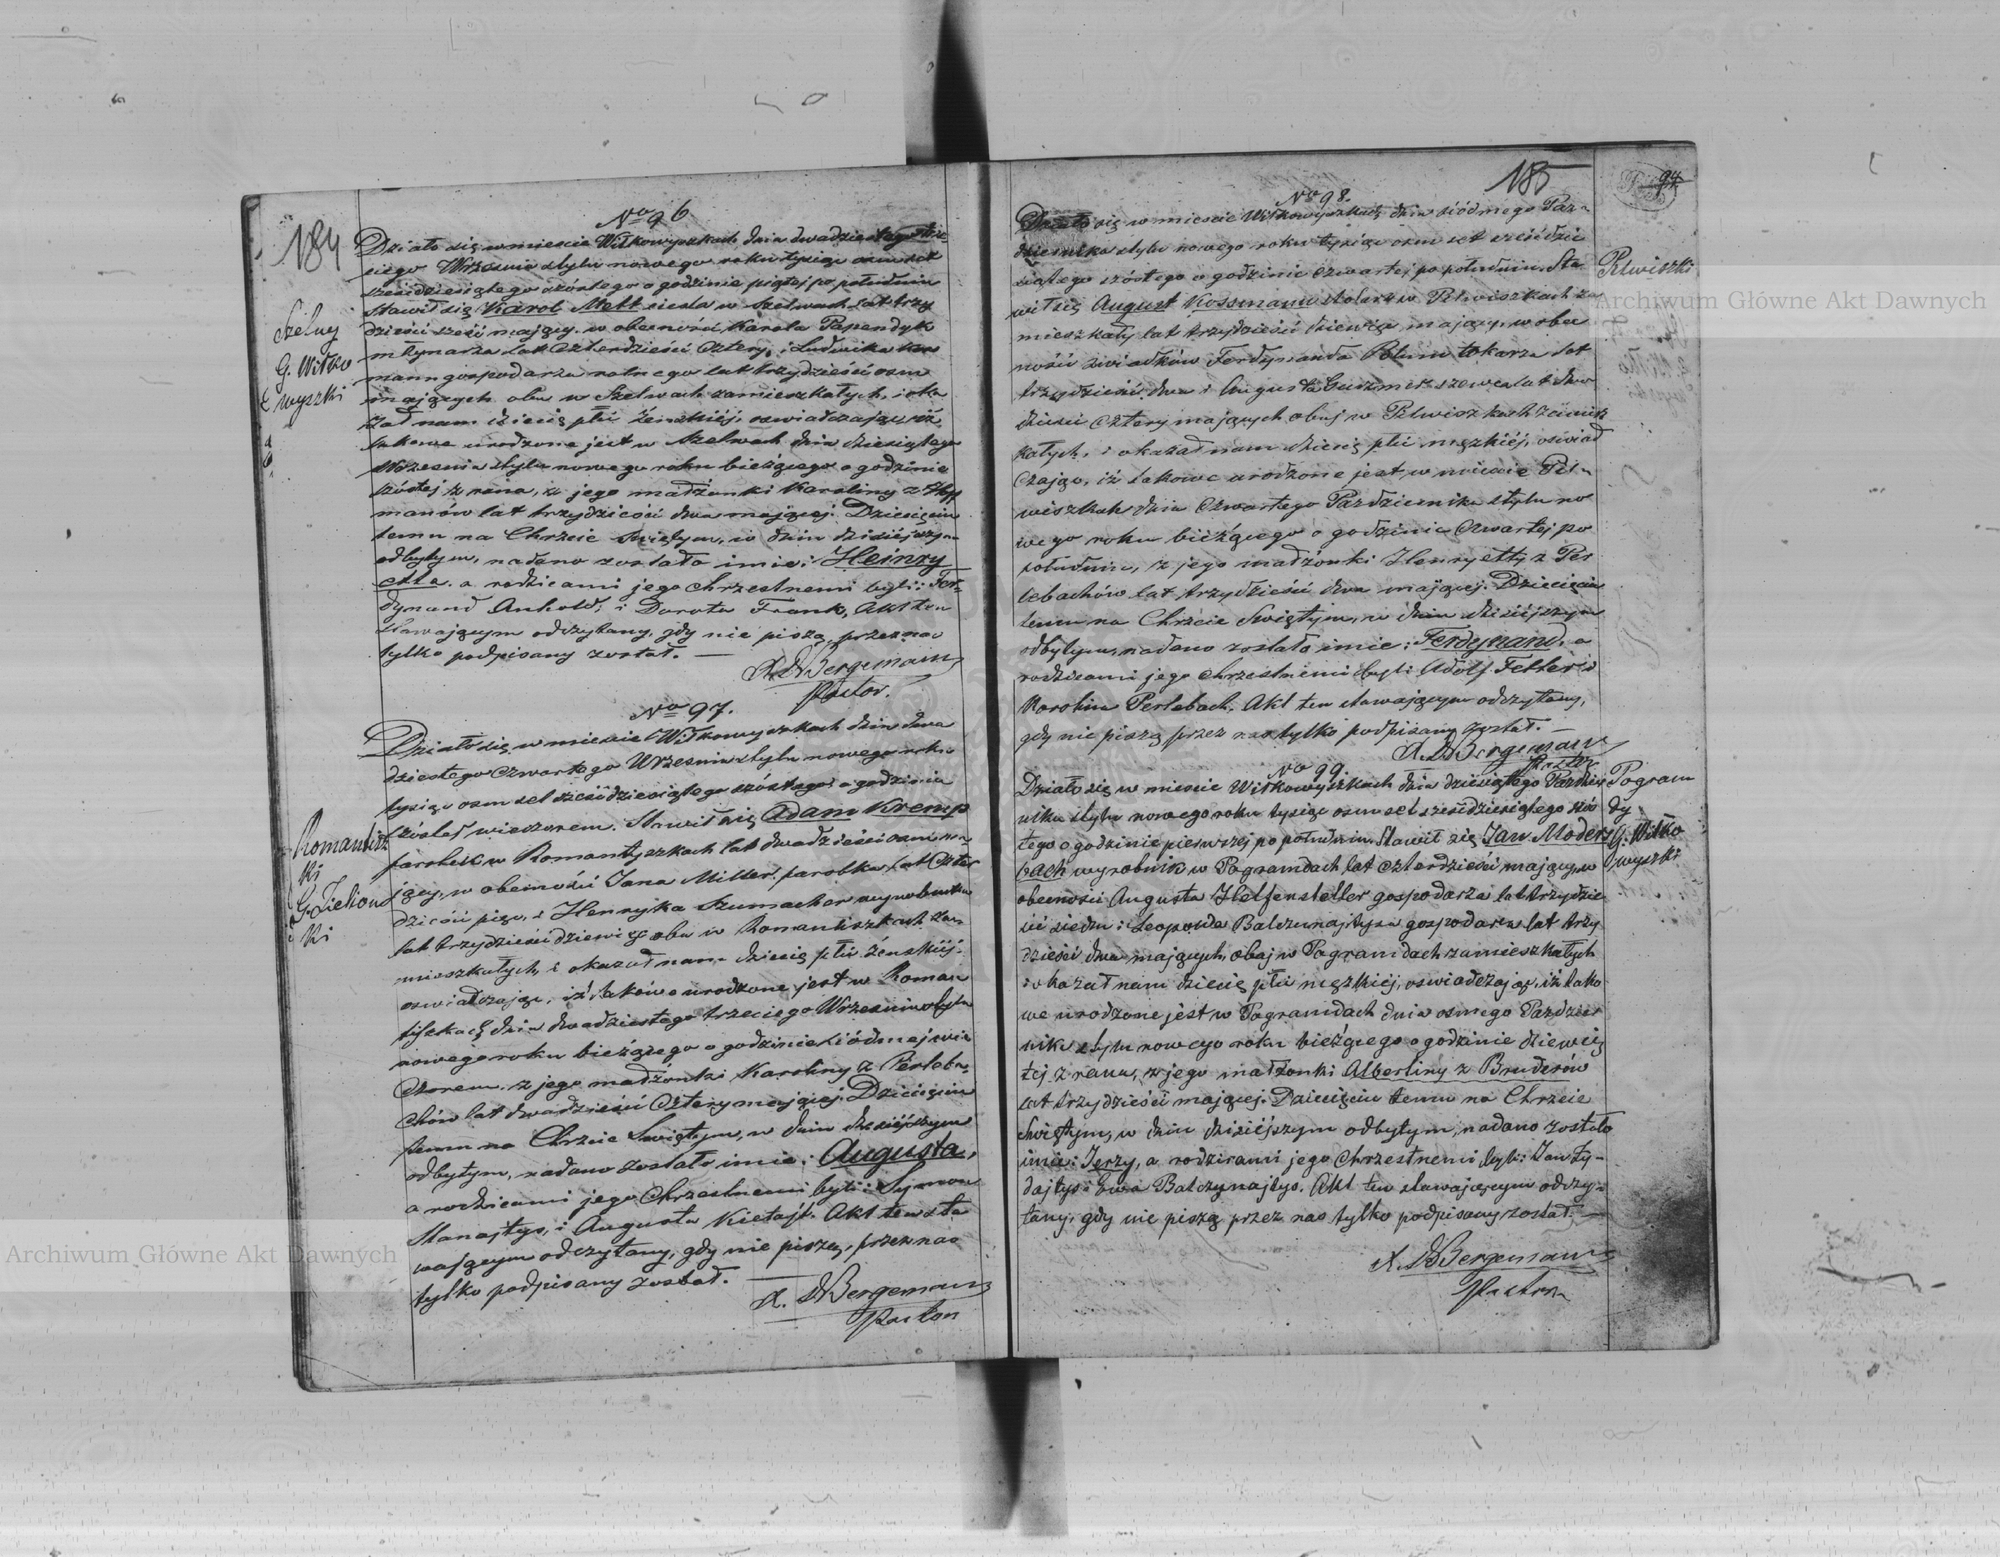 184
No 96
Działo się w mieście Wiłkowyszkach dnia dwudziestego trze-
ciego Września stylu nowego roku tysiąc osm set
sześćdziesiątego szóstego o godzinie piątej po południu
Stawił się Karol Mett cieśla w Szelwach lat trzy
dzieści sześć mający, w obecności Karola Papendyk
młynarza lat czterdzieści cztery, i Ludwika
mann gospodarza rolnego lat trzydzieści osm
mających obu w Szelwach zamieszkałych, i oka
zał nam dziecię płci żeńskiéj, oswiadczając, iż
takowe urodzone jest w Szelwach dnia dziesiątego
Września stylu nowego roku bieżącego o godzinie
szóstej z rana, z jego małżonki Karoliny z
manów lat trzydzieści dwa mającej. Dziecięciu
temu na Chrzcie Świętym, w dniu dzisiéjszym
odbytym, nadano zostało imie: Heinry
etta, a rodzicami jego chrzestnemi byli: Fer-
dynand Anhold, i Dorota Frank, Akt ten
stawającym odczytany, gdy nie piszą, przez nas
tylko podpisany został. —
A. D Bergemann
Pastor.
Szelwy
G. Wiłko
wyszki
No 97.
Działo się w mieście Wiłkowyszkach dnia dwu
dziestego czwartego Września stylu nowego roku
tysiąc osm set sześćdziesiątego szóstego o godzinie
szóstej wieczorem. Stawił się Adam Kremp
parobek w Romantyszkach lat dwadzieścia osm ma
jący, w obecności Jana Miller parobka lat czter
dzieści pięć, i Henryka Szumacher wyrobnika
lat trzydzieści dziewięć obu w Romantiszkach za
mieszkałych, i okazał nam dziecię płci żenskiéj,
oswiadczając, iż takowe urodzone jest w Roman
tiszkach dnia dwudziestego trzeciego Września stylu
nowego roku bieżącego o godzinie siódmej wie
czorem, z jego małżonki Karoliny z Perleba-
chów lat dwadzieścia cztery mającej. Dziecięciu
temu na Chrzcie Świętym, w dniu dzisiéjszym
odbytym, nadano zostało imie: Augusta,
a rodzicami jego Chrzestnemi byli: Symon
Stanajtys, i Augusta Kietajt. Akt ten sta
wającym odczytany, gdy nie piszą, przez nas
tylko podpisany został.
A. D Bergemann
Pastor
Romantisz
ki
G. Zielion
ki
185
94
No 98.
Działo się w mieście Wiłkowyszkach dnia siódmego Paź-
dziernika stylu nowego roku tysiąc osm set sześćdzie
siątego szóstego o godzinie czwartej po południu. Sta
wił się August Kossmann stolarz w Pilwiszkach za
mieszkały lat trzydzieści dziewięć mający, w obec
ności świadków Ferdynanda Blum tokarza lat
trzydzieści dwa i Augusta szewca lat dwa
dzieści cztery mających obuj w Pilwiszkach zamiesz
kałych, i okazał nam dziecię płci męzkiéj, oświad
czając, iż takowe urodzone jest w mieście Pil-
wiszkach dnia czwartego Października stylu no
wego roku bieżącego o godzinie czwartej po
południu, z jego małżonki Henryetty z Per
lebachów lat trzydzieści dwa mającej. Dziecięciu
temu na Chrzcie Świętym, w dniu dzisiéjszym
odbytym, nadano zostało imie: Ferdynand, a
rodzicami jego chrzestnemi byli: Adolf Fetter i
Karolina Perlebach. Akt ten stawającym odczytany,
gdy nie piszą przez nas tylko podpisany został. —
A. D Bergemann
Pastor
Pilwiszki
No 99.
Działo się w mieście Wiłkowyszkach dnia dziesiątego Paździer
nika stylu nowego roku tysiąc osm set sześćdziesiątego szós
tego o godzinie pierwszej po południu. Stawił się Jan Moders
bach wyrobnik w Pogramdach lat czterdzieści mający, w
obecności Augusta Helfensteller gospodarza lat trzydzie
ści siedm i Leopolda Balczunajtysa gospodarza lat trzy
dzieści dwa mających, obaj w Pogramdach zamieszkałych
i okazał nam dziecię płci męzkiéj, oswiadczając, iż tako
we urodzone jest w Pogramdach dnia osmego Paździer
nika stylu nowego roku bieżącego o godzinie dziewią
tej z rana, z jego małżonki Albertiny z Bruderów
lat trzydzieści mającej. Dziecięciu temu na Chrzcie
Świętym, w dniu dzisiéjszym odbytym, nadano zostało
imie: Jerzy, a rodzicami jego Chrzestnemi byli: Jan Ży-
dajtys i Ewa Balczynajtys. Akt ten stawającym odczy-
tany, gdy nie piszą przez nas tylko podpisany został. —
A. D Bergemann
Pastor
Pogram
dy
G. Wiłko
wyszki
Archiwum Główne Akt Dawnych
Archiwum Główne Akt Dawnych